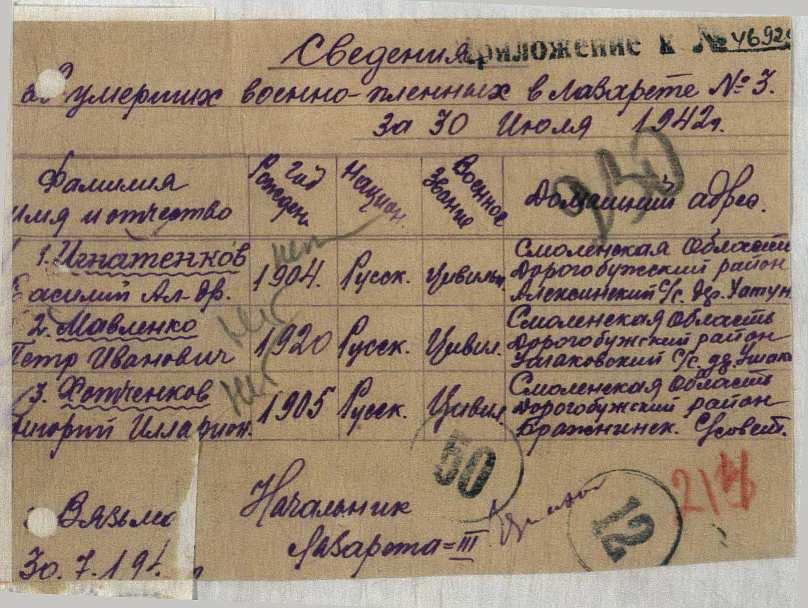 Приложение к № 46929
Сведения
об умерших военно-пленных в лазарете № 3.
за 30 Июля 1942г.
Фамилия имя и отчество
Год Рожден.
Национ.
Военное Звание
Домашний адрес.
230
1. Игнатенков Василий Ал-др.
нет
1904.
Русск.
Цивильн.
Смоленская Область
Дорогобужский район
Алексинский С/с. др.
2. Мавленко
Петр Иванович
Нет
1920
Русск.
Цивил.
Смоленская Область
Дорогобужский район
Ушаковский С/с. др. Ушак
3. Хотченков
Григорий Илларион.
Нет
1905
Русск.
Цивил.
Смоленская Область
Дорогобужский район
Бражнинск. С/совет.
50
12
Вязьма
30.7.194
Начальник
Лазарета = III.